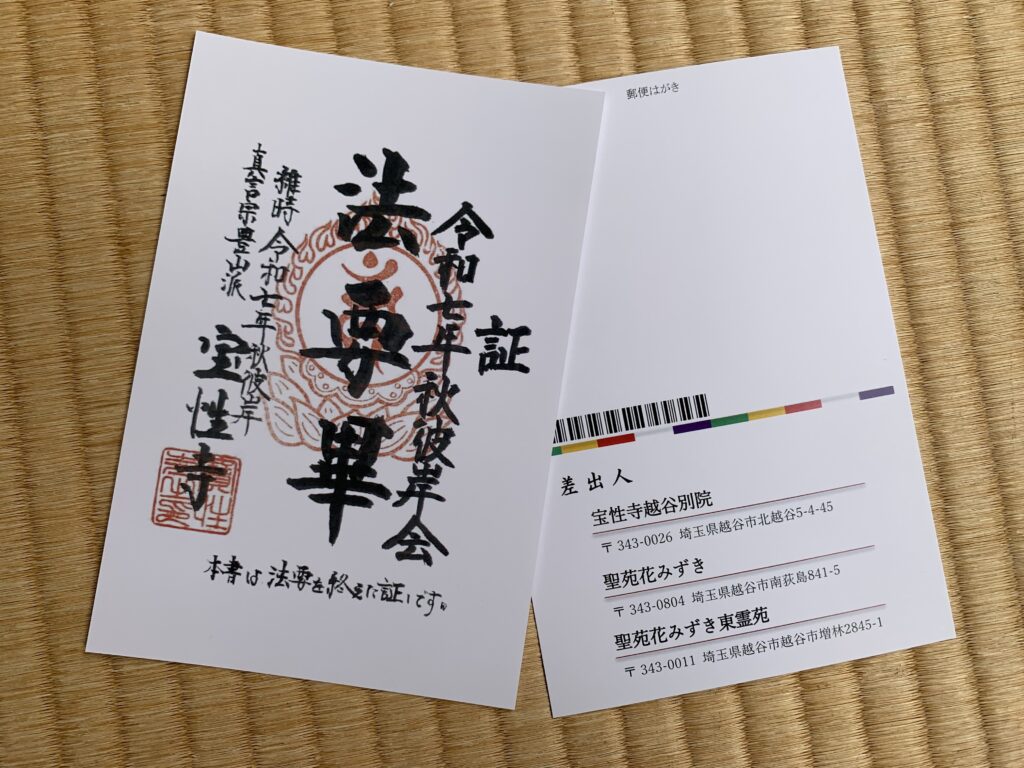 証
令和七年秋彼岸会
法要畢
維時令和七年秋彼岸
真言宗豊山派
宝性寺
本書は法要を終えた証しです。
郵便はがき
差出人
宝性寺越谷別院
〒343-0026 埼玉県越谷市北越谷5-4-45
聖苑花みずき
〒343-0804 埼玉県越谷市南荻島841-5
聖苑花みずき東霊苑
〒343-0011 埼玉県越谷市越谷市増林2845-1